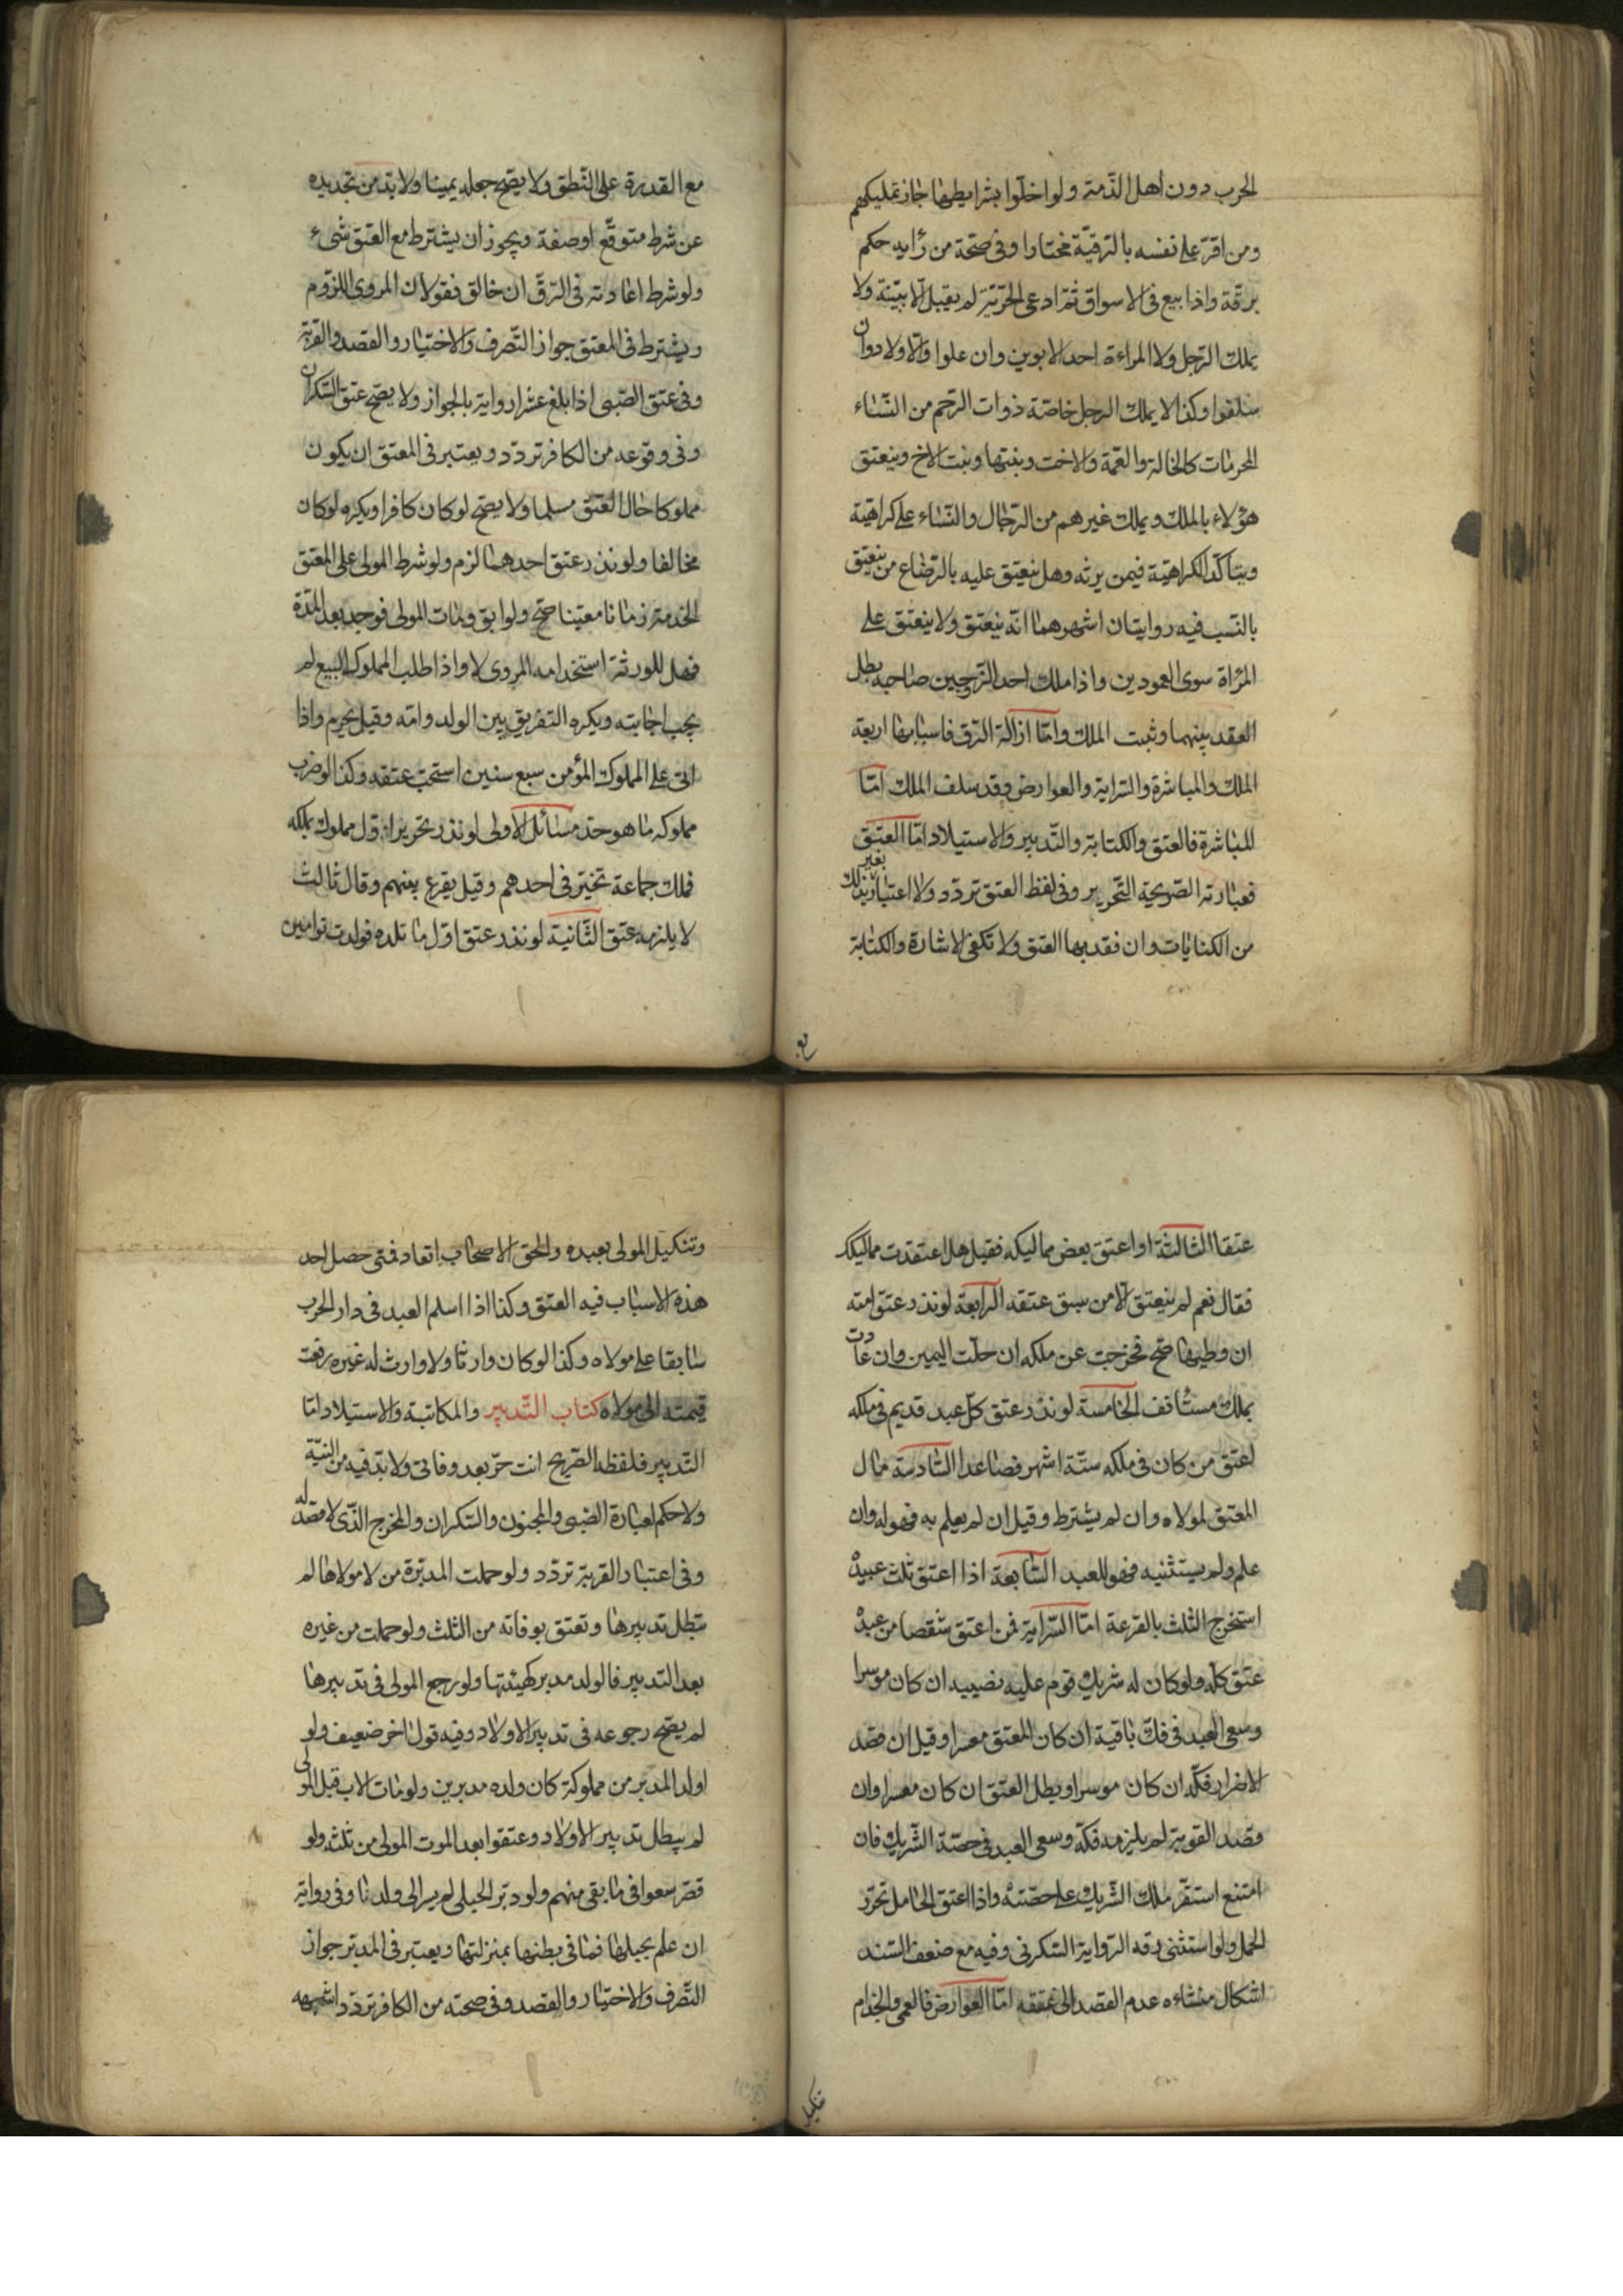 الحرب دون اهل الذمة ولو اخلّوا بشرايطها جاز تمليكهم
ومن اقرّ على نفسه بالرقيّة مختارا وفى صحّة من رأيه حكم
برقّه واذا بيع فى الاسواق ثمّ ادعى الحريّة لم يقبل الّا ببيّنة ولا
يملك الرّجل ولا المراءة احد الابوين وان علوا والاولاد وان
سلفوا وكذا لا يملك الرجل خاصّة ذوات الرّحم من النّساء
المحرمات كالخالة والعّمة والاخت وبنتها وبنت الاخ وينعتق
هؤلاء بالملك ويملك غيرهم من الرّجال والنّساء على كراهيّة
ويتاكّد الكراهيّة فيمن يرثه وهل ينعتق عليه بالرّضاع من ينعتق
بالنّسب فيه روايتان اشهرهما انّه ينعتق ولا ينعتق على
المرْاة سوى العمودين واذا ملك احد الزّوجين صاحبه بطل
العقد بينهما وثبت الملك وامّا ازالة الرّق فاسبابها اربعة
الملك والمباشرة والسّراية والعوارض وقد سلف الملك امّا
المباشرة فالعتق والكتابة والتّدبير والاستيلاد امّا العتق
فعبارته الصّريحة التّحرير وفى لفظ العتق تردّد ولا اعتبار بغير ذلك
من الكنايات وان قصد بها العتق ولا تكفى الاشارة والكتابة
مع القدرة على النّطق ولا يصّح جعله يمينا ولا بدّ من تجديده
عن شرط متوقّع او صفة ويجوز ان يشترط مع العتق شىء
ولو شرط اعادته فى الرّقّ ان خالف فقولان المروى اللزوم
ويشترط فى المعتق جواز التّصرف والاختيار والقصد والقربة
وفى عتق الصّبى اذا بلغ عشرا رواية بالجواز ولا يصّح عتق السّكران
وفى وقوعه من الكافر تردّد ويعتبر فى المعتق ان يكون
مملوكا حال العتق مسلما ولا يصّح لو كان كافرا ويكره لو كان
مخالفا ولو نذر عتق احدهما لزم ولو شرط المولى على المعتق
الخدمة زمانا معيّنا صّح ولو ابق ومات المولى فوجد بعد المدّة
فهل للورثة استخدامه المروى لا واذا طلب المملوك البيع لم
يجب اجابته ويكره التفريق بين الولد وامّه وقيل يحرم واذا
اتى على المملوك المؤمن سبع سنين استحبّ عتقه وكذا لو ضرب
مملوكه ما هو حدّ مسائل الاولى لو نذر تحرير اوّل مملوك يملكه
فملك جماعة تخيّر فى احدهم وقيل يقرع بينهم وقال ثالث
لا يلزمه عتق الثّانية لو نذر عتق اوّل ما تلده فولدت توامين
عتقا الثالثة او اعتق بعض مماليكه فقيل هل اعتقت مماليكك
فقال نعم لم ينعتق الّا من سبق عتقه الرابعة لو نذر عتق امته
ان وطيها صّح فخرجت عن ملكه انحلّت اليمين وان عادت
بملك مستانف الخامسة لو نذر عتق كلّ عبد قديم فى ملكه
اعتق من كان فى ملكه ستّة اشهر فصاعدا السّادسة مال
المعتق لمولاه وان لم يشترط وقيل ان لم يعلم به فهو له وان
علم ولم يستثنيه فهو للعبد السّابعة اذا اعتق ثلث عبيده
استخرج الثلث بالقرعة امّا السّراية فمن اعتق شقصا من عبده
عتق كلّه ولو كان له شريك قوم عليه نصيبه ان كان موسرا
وسعى العبد فى فكّ باقيه ان كان المعتق معسرا وقيل ان قصد
الاضرار فكّه ان كان موسرا ويطل العتق ان كان معسرا وان
قصد القربة لم يلزمه فكّه وسعى العبد فى حصّة الشّريك فان
امتنع استقرّ ملك الشّريك على حصّته واذا اعتق الحامل تحرّر
الحمل ولو استثنى رقه الرّواية السّكونى وفيه مع ضعف السّند
اشكال منشاءه عدم القصد الى عتقه امّا العوارض فالعمى والجذام
وتنكيل المولى بعبده والحق الاصحاب اقعاد فمتى حصل احد
هذه الاسباب فيه العتق وكذا اذا اسلم العبد فى دار الحرب
سابقا على مولاه وكذا لو كان وارثا ولا وارث له غيره رفعت
قيمته الى مولاه كتاب التّدبير والمكاتبة والاستيلاد امّا
التّدبير فلفظه الصّريح انت حرّ بعد وفاتى ولا بدّ فيه من النيّة
ولا حكم لعبارة الصّبى والمجنون والسّكران والمخرج الّذى لا قصد له
وفى اعتبار القربة تردّد ولو حملت المدبّرة من لا مولاها لم
تبطل تدبيرها وتعتق بوفاته من الثلث ولو حملت من غيره
بعد التدبير فالولد مدبر كهيئتها ولو رجع المولى فى تدبيرها
لم يصّح رجوعه فى تدبير الاولاد وفيه قول اخر ضعيف ولو
اولد المدبر من مملوكة كان ولده مدبرين ولو مات الاب قبل المولى
لم يبطل تدبير الاولاد وعتقوا بعد الموت المولى من ثلثه ولو
قصّر سعوا فى ما بقى منهم ولو دبّر الحبلى لم يسر الى ولدها وفى رواية
ان علم بحبلها فما فى بطنها بمنزلتها ويعتبر فى المدبّر جواز
التّصرف والاختيار والقصد وفى صحته من الكافر تردّد اشبهه